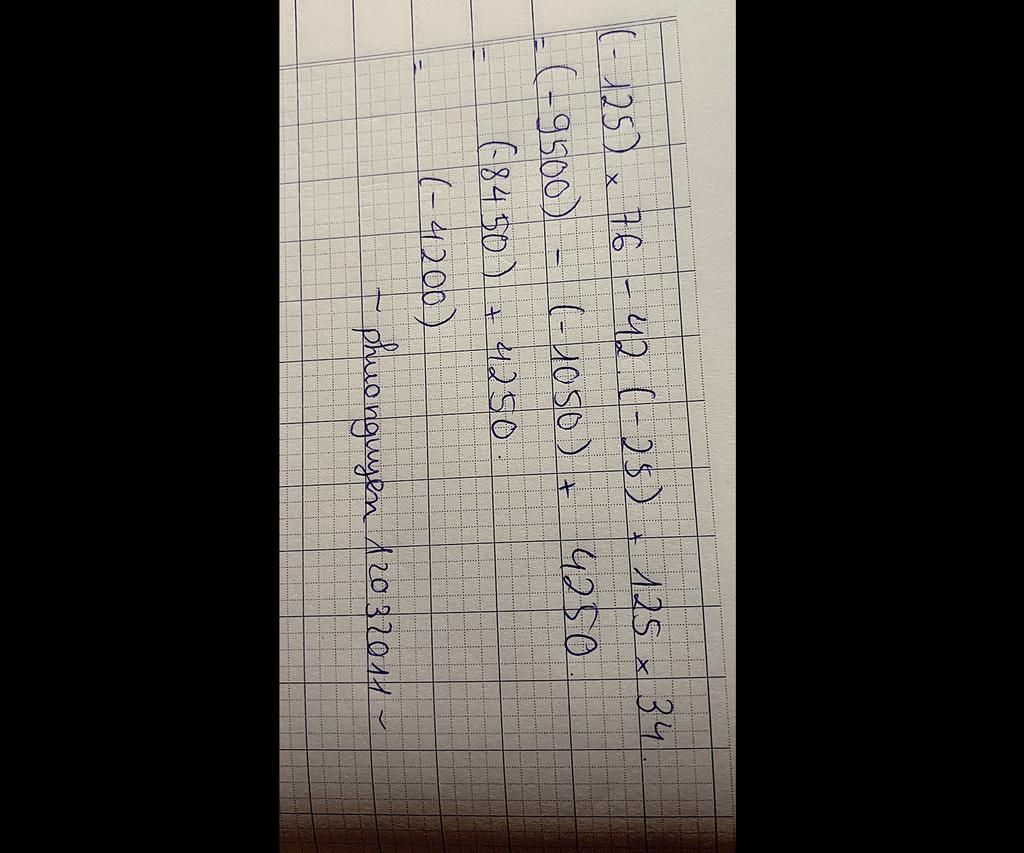 (-125) × 76 - 42.(-25) + 125 × 34.
= (-9500) - (-1050) + 4250.
= (-8450) + 4250.
= (-4200)
~ phuonguyen 12032011 ~